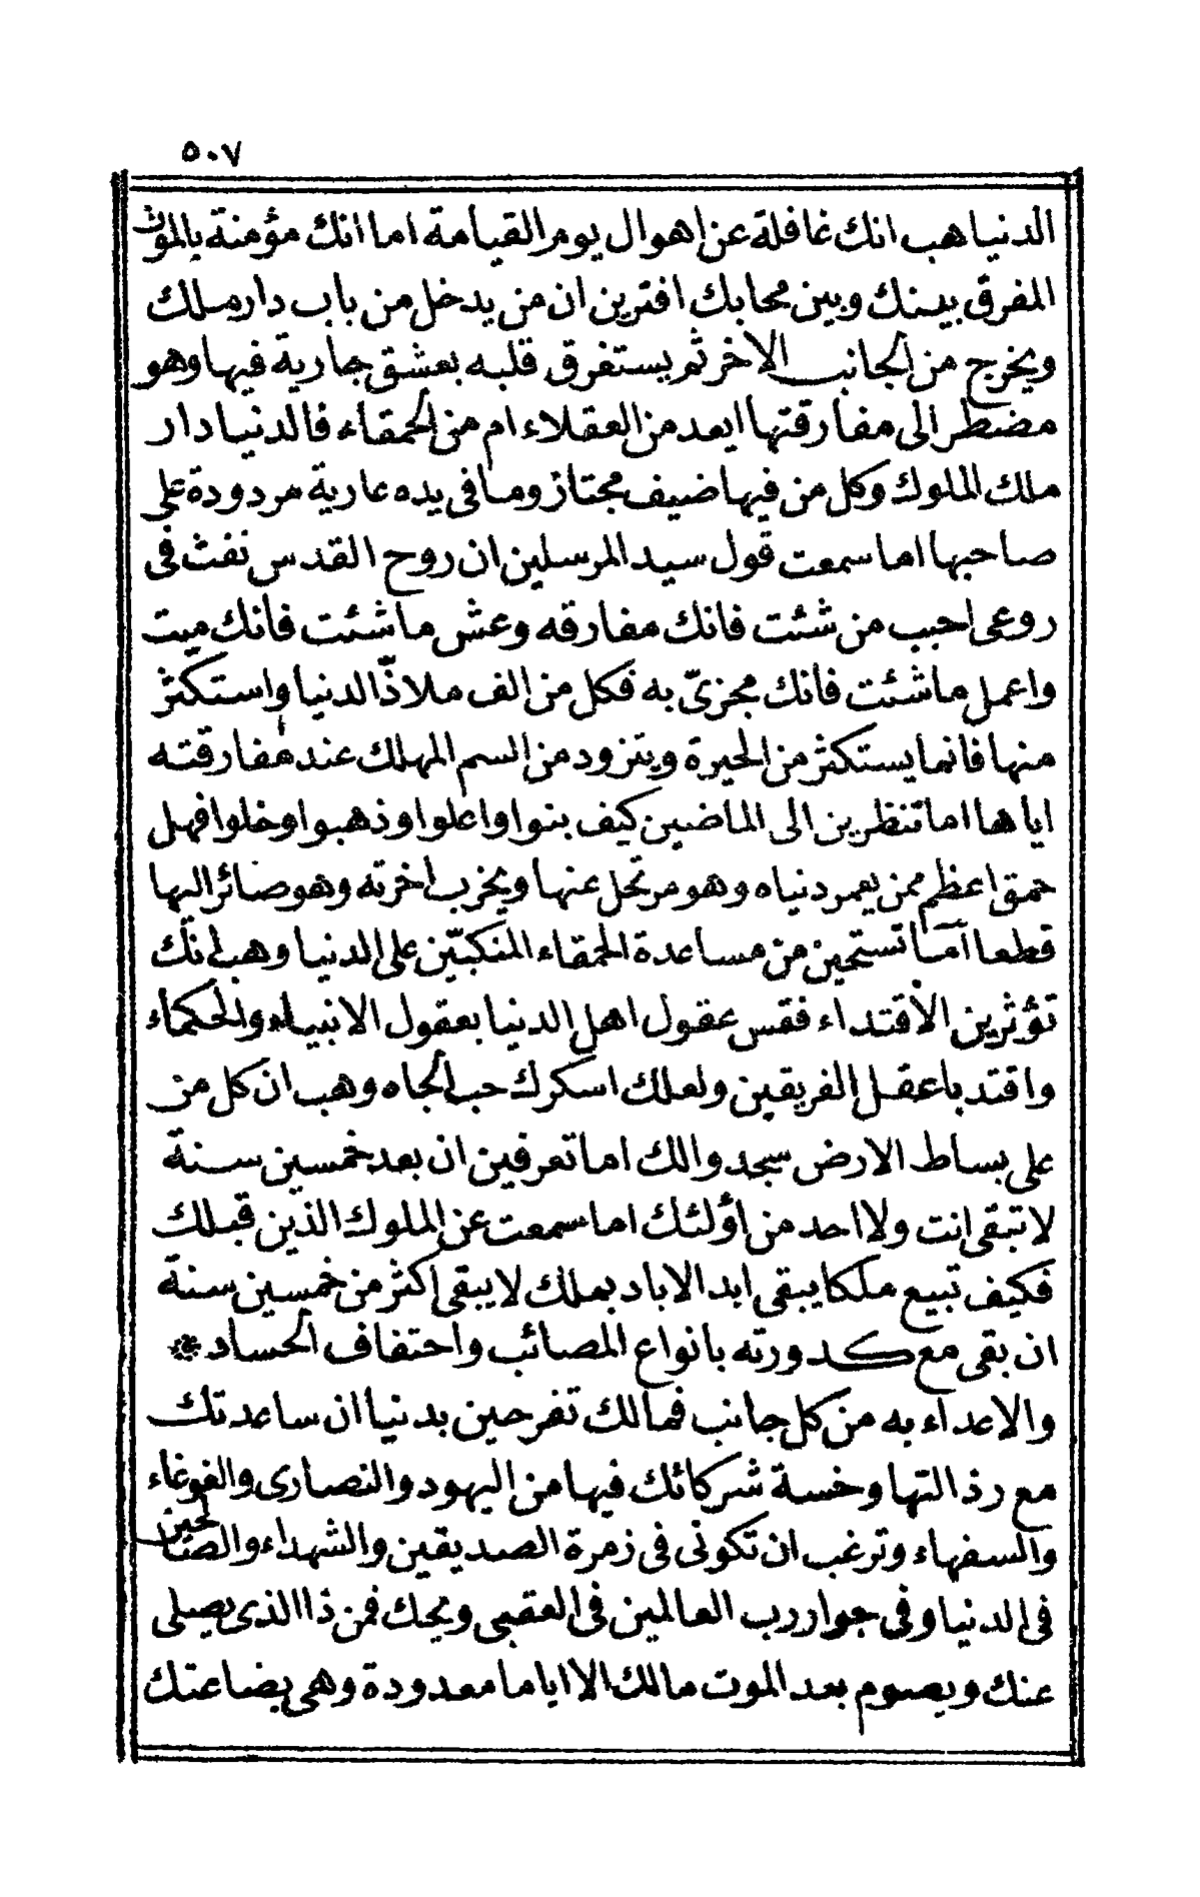 ٥٠٧
الدنيا هب انك غافلة عن اهوال يوم القيامة اما انك مؤمنة بالموت
المفرق بينك وبين محابك افترين ان من يدخل من باب دار ملك
ويخرج من الجانب الاخر ثم يستغرق قلبه بعشق جارية فيها وهو
مضطر الى مفارقتها ايعد من العقلاء ام من الحمقاء فالدنيا دار
ملك الملوك وكل من فيها ضيف مجتاز وما فى يده عارية مردودة على
صاحبها اما سمعت قول سيد المرسلين ان روح القدس نفث فى
روعى احبب من شئت فانك مفارقه وعش ما شئت فانك ميت
واعمل ما شئت فانك مجزىّ به فكل من الف ملاذّ الدنيا واستكثر
منها فانما يستكثر من الحيرة ويتزود من السم المهلك عند مفارقته
اياها اما تنظرين الى الماضين كيف بنوا واعلوا وذهبوا وخلوا فهل
حمق اعظم ممن يعمر دنياه وهو مرتحل عنها ويخرب اخرته وهو صائر اليها
قطعا آما تستحين من مساعدة الحمقاء المنكبّين على الدنيا وهب انك
تؤثرين الاقتداء فقس عقول اهل الدنيا بعقول الانبياء والحكماء
واقتد باعقل الفريقين ولعلك اسكرك حب الجاه وهب ان كل من
على بساط الارض سجدوا لك اما تعرفين ان بعد خمسين سنة
لا تبقى انت ولا احد من اؤلئك اما سمعت عن الملوك الذين قبلك
فكيف تبيع ملكا يبقى ابد الاباد بملك لا يبقى اكثر من خمسين سنة
ان بقى مع كدورته بانواع المصائب واحتفاف الحساد
والاعداء به من كل جانب فمالك تفرحين بدنيا ان ساعدتك
مع رذالتها وخسة شركائك فيها من اليهود والنصارى والغوغاء
والسفهاء وترغب ان تكونى فى زمرة الصديقين والشهداء والصالحين
فى الدنيا وفى جوار رب العالمين فى العقبى ويحك فمن ذا الذى يصلى
عنك ويصوم بعد الموت مالك الا اياما معدودة وهى بضاعتك